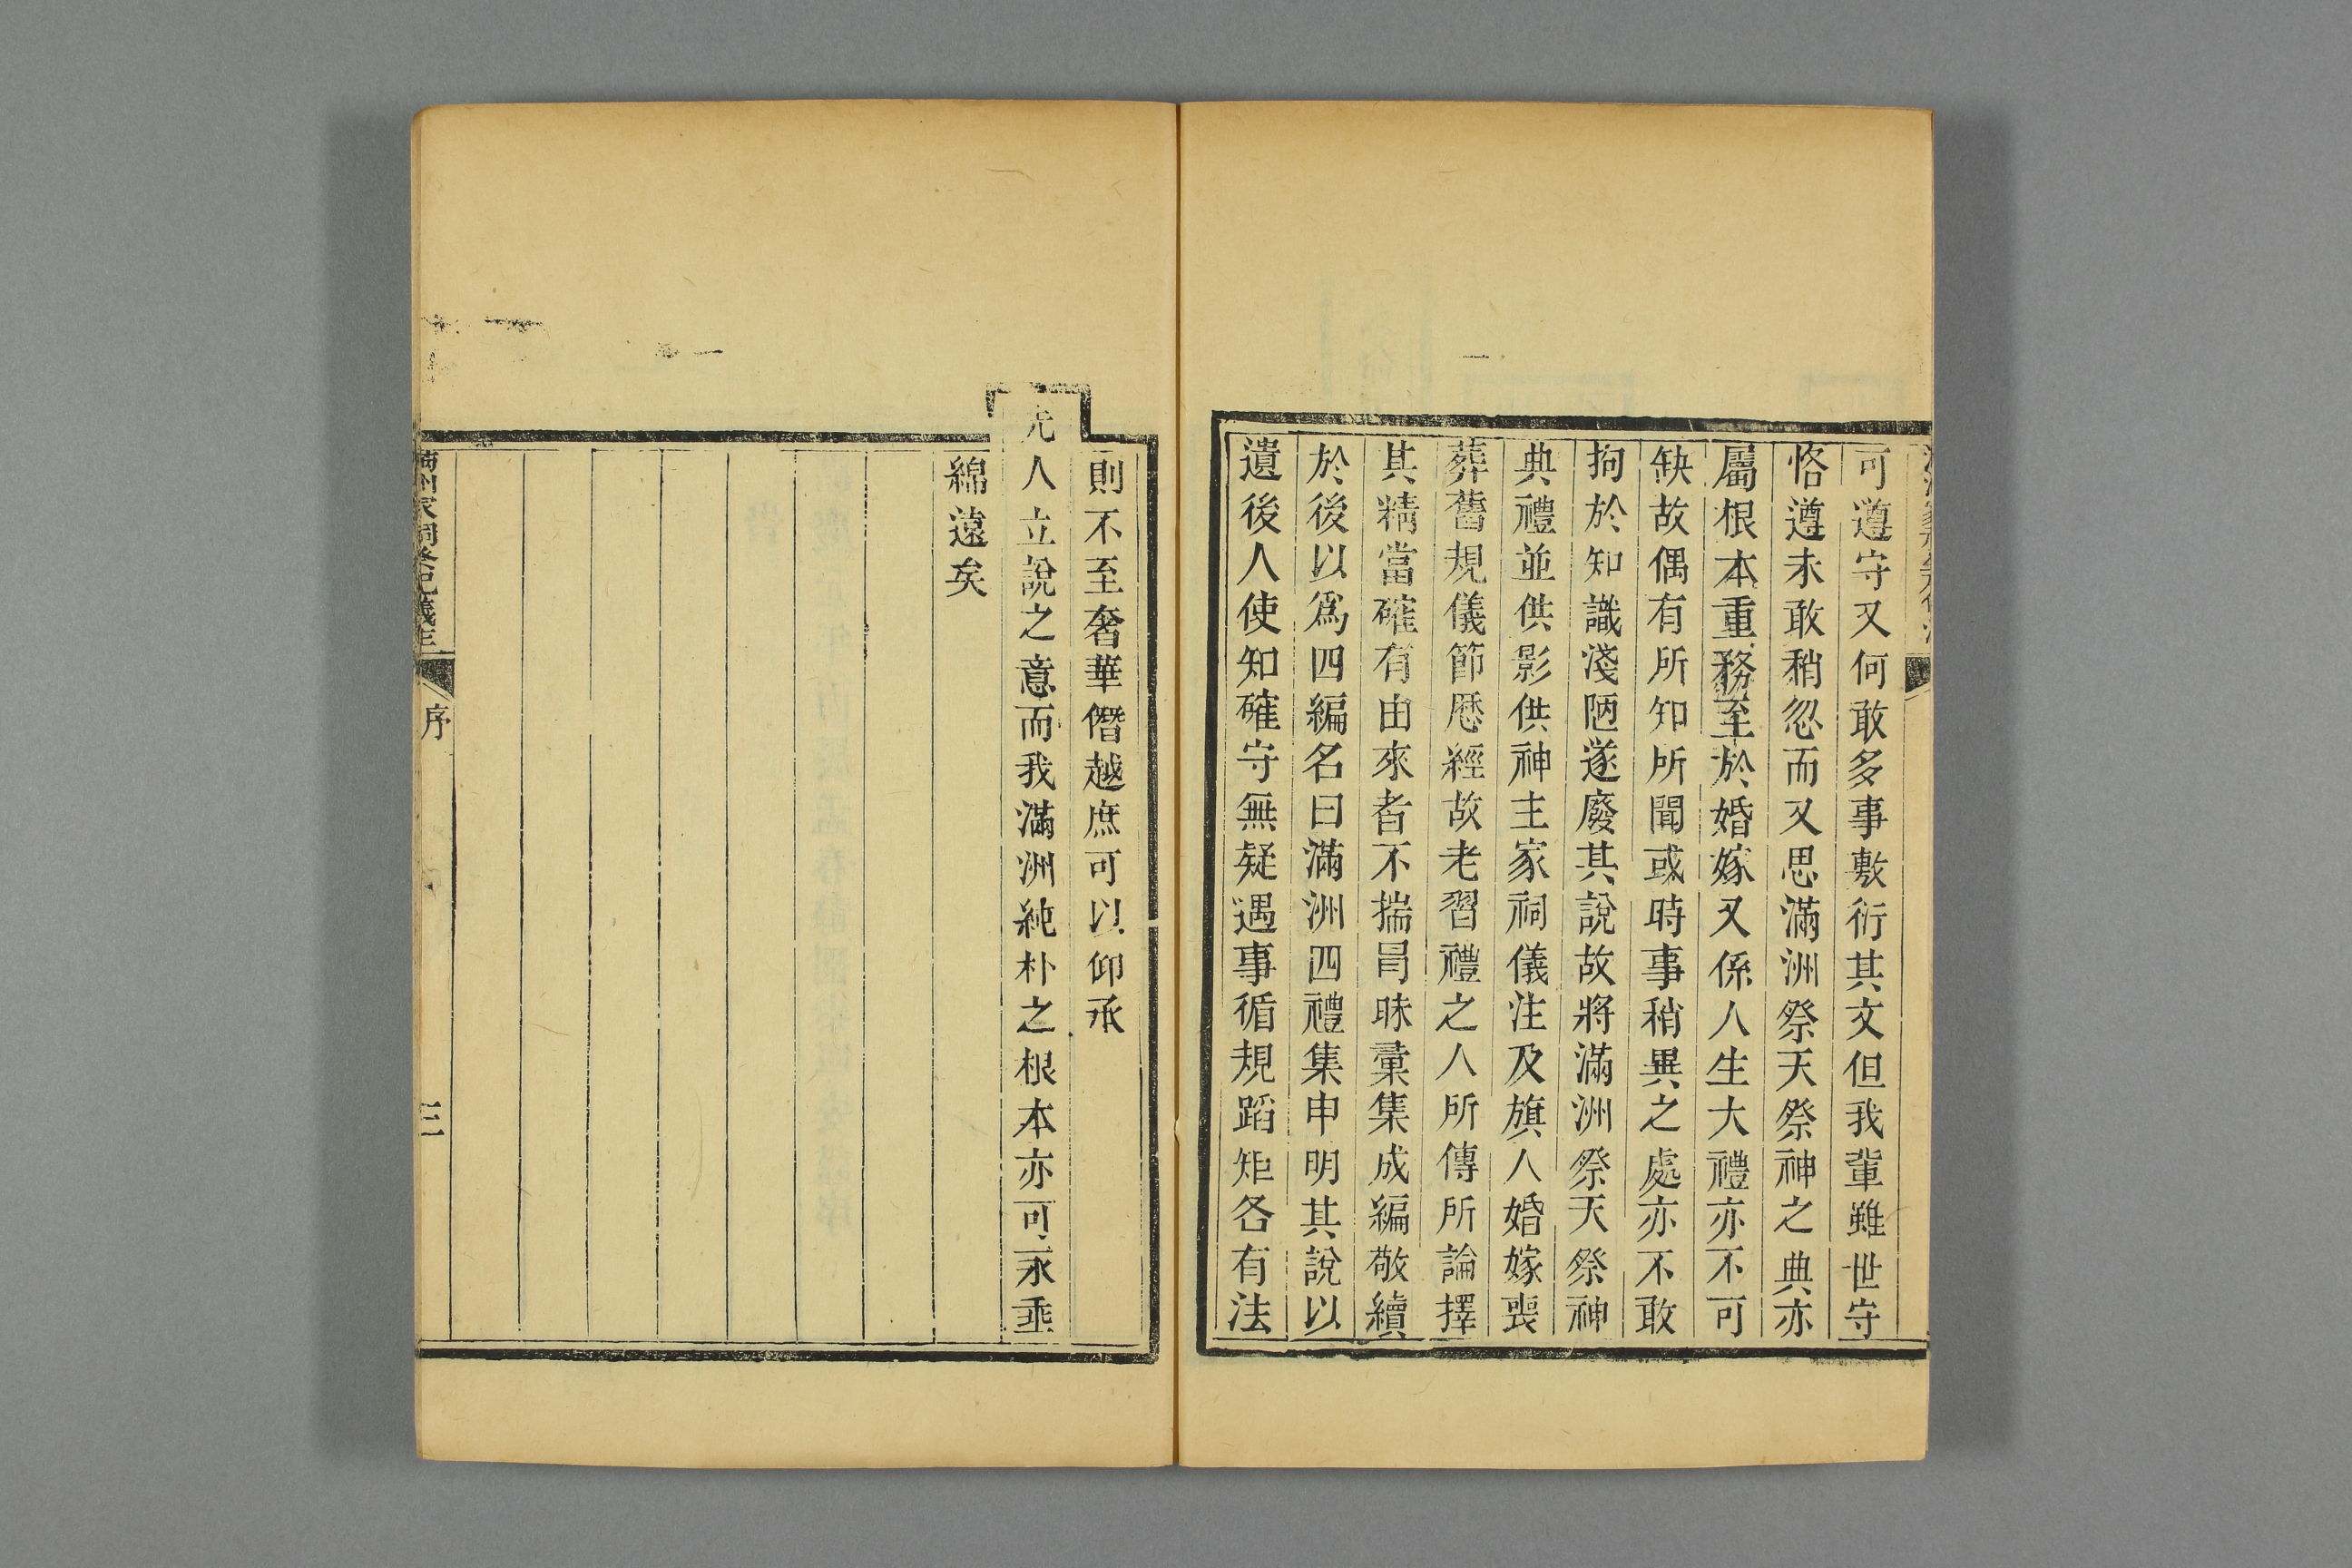 可遵守又何敢多事敷衍其文但我輩雖世守
恪遵未敢稍忽而又思滿洲祭天祭神之典亦
屬根本重務至於婚嫁又係人生大禮亦不可
缺故偶有所知所聞或時事稍異之處亦不敢
拘於知識淺陋遂廢其說故將滿洲祭天祭神
典禮並供影供神主家祠儀注及旗人婚嫁喪
葬舊規儀節歷經故老習禮之人所傳所論擇
其精當確有由來者不揣冒昧彙集成編敬續
於後以爲四編名曰滿洲四禮集申明其說以
遺後人使知確守無疑遇事循規蹈矩各有法
則不至奢華僭越庶可以仰承
先人立說之意而我滿洲純朴之根本亦可永垂
綿遠矣
序
三